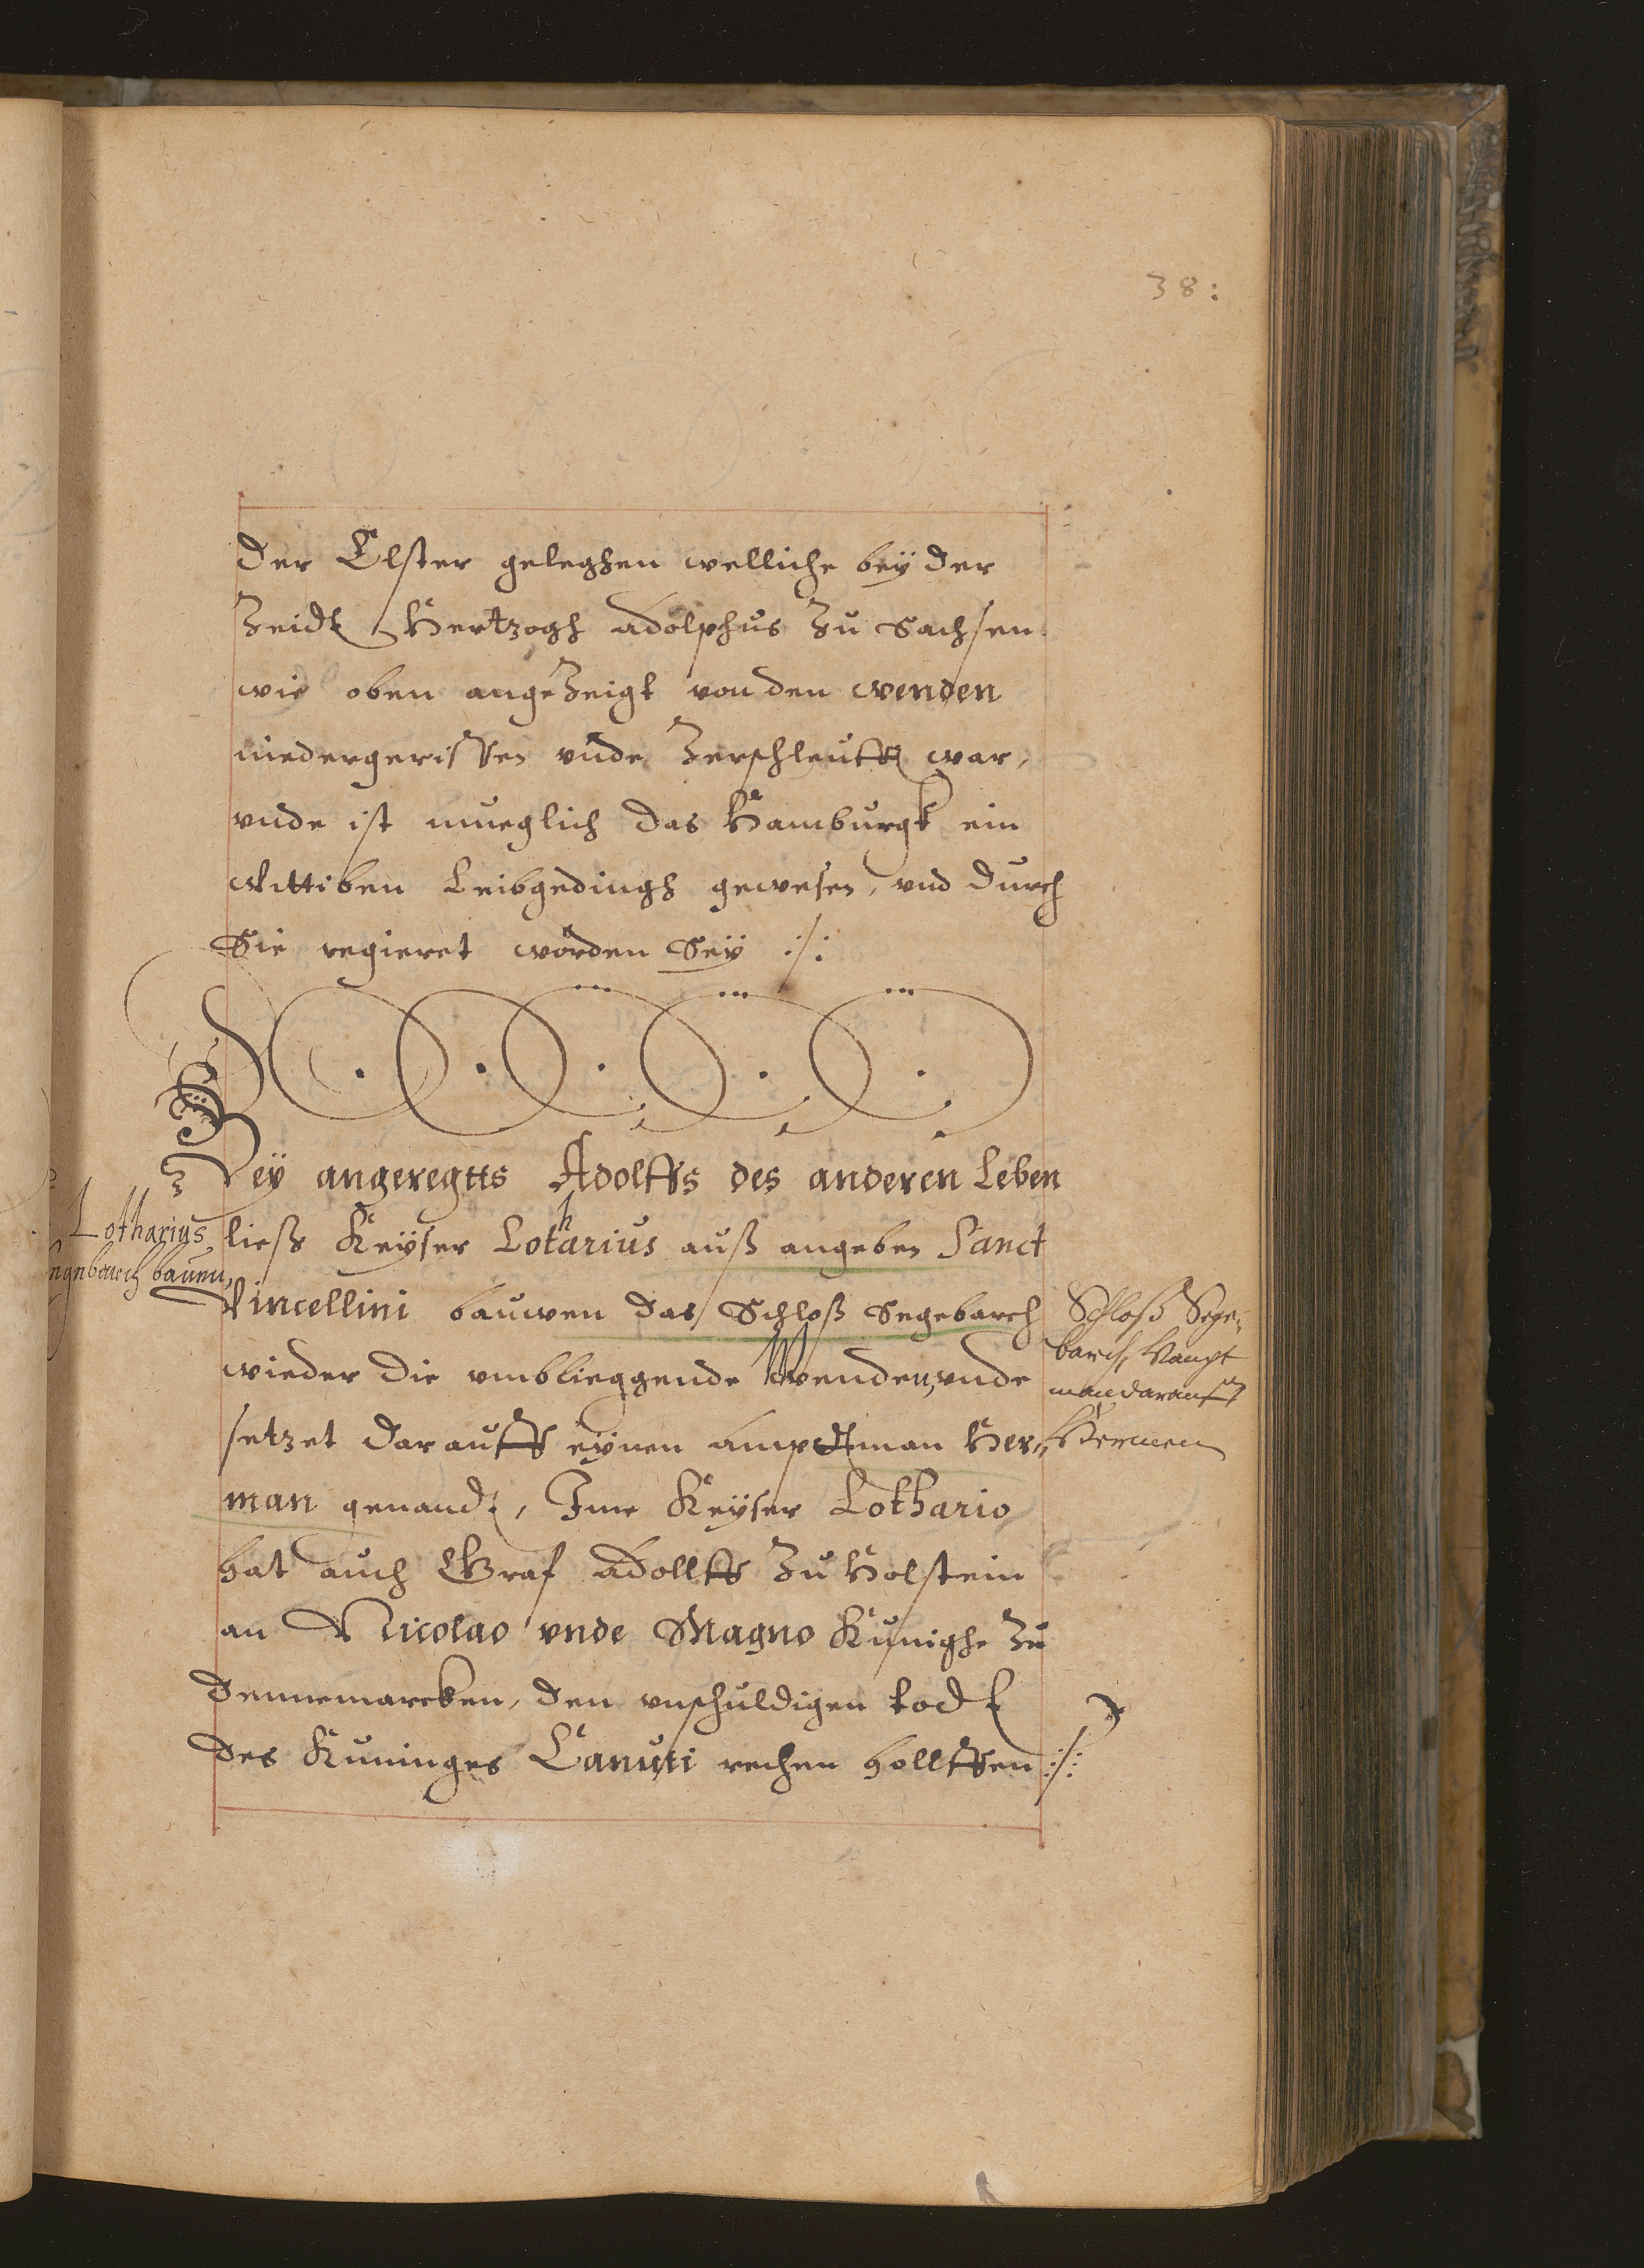 38:
der Elster geleghen welliche bey der
Zeidt Hertzogh Adolphus Zu Sachsen
wie oben angeZeigt von den wenden
niedergerissen vnde Zerschleufft war,
vnde ist mueglich das Hamburgk ein
wittiben Leibgedingh gewesen, vnd durch
Sie regieret worden Sey :/:
Bey angeregtts Adolffs des anderen Leben
ließ Keyser Lotharius auß angeben Sanct
Vincellini bauwen das Schloß Segebarch
wieder die vmblieggende Wenden, vnde
setzet darauff eynen Ampdtman Her„
man genandt, Ime Keyser Lothario
hat auch Graf Adollff Zu Holstein
an Nicolao vnde Magno Kunighe Zu
Dennemarcken, den vnschuldigen todt
des Kuninges Canuti rechen hollffen :/:
Lotharius
bauen,
Schloß Sege„
barch, Haupt
man darauff
Hermen